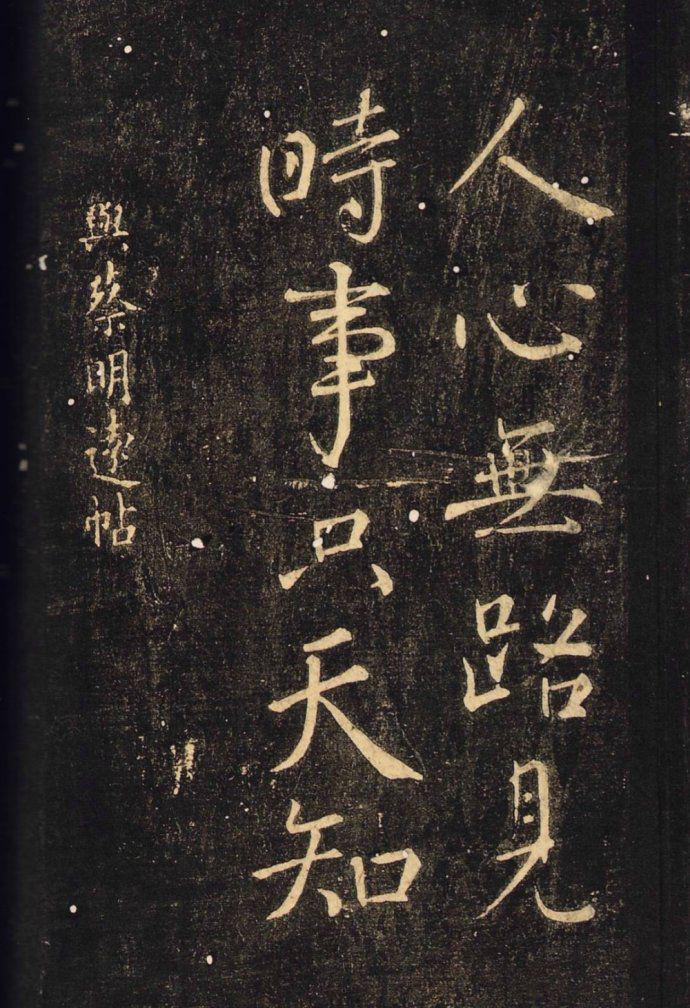 人心無路見
時事只天知
與蔡明遠帖